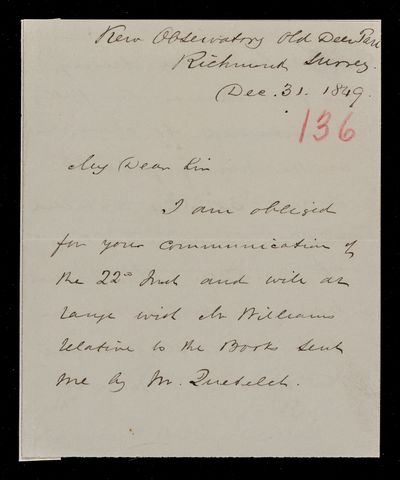 Kew Observatory Old Deer Park
Richmond Surrey.
Dec. 31. 1849.
136
My Dear Sir
I am obliged
for your communication of
the 22nd Inst and will ar
range with Mr Williams
relative to the Books sent
me by M. Quetelet.